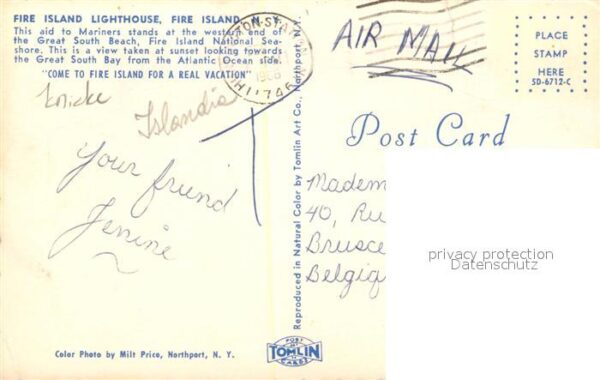 FIRE ISLAND LIGHTHOUSE, FIRE ISLAND, N. Y.
This aid to Mariners stands at the western end of
the Great South Beach, Fire Island National Sea-
shore. This is a view taken at sunset looking towards
the Great South Bay from the Atlantic Ocean side.
"COME TO FIRE ISLAND FOR A REAL VACATION"
Islandia
Your friend
Jenine
Color Photo by Milt Price, Northport, N. Y.
Reproduced in Natural Color by Tomlin Art Co., Northport, N.Y.
STA
11746
AIR MAIL
PLACE
STAMP
HERE
5D-6712-C
Post Card
Madem
40, Ru
Brusce
Belgiq
privacy protection
Datenschutz
POST
TOMLIN
CARDS